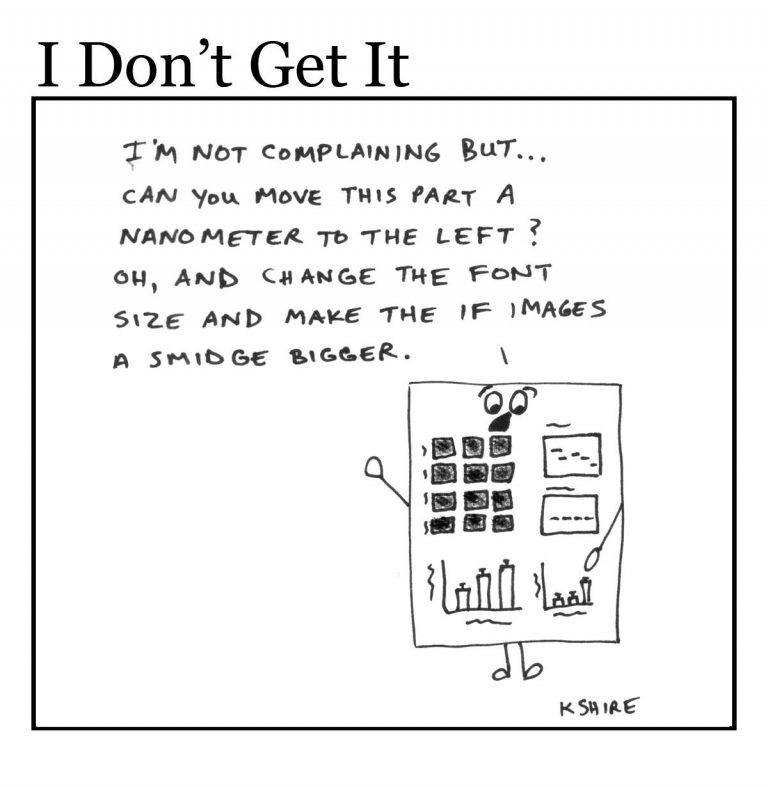 I Don't Get It
I'M NOT COMPLAINING BUT...
CAN YOU MOVE THIS PART A
NANOMETER TO THE LEFT?
OH, AND CHANGE THE FONT
SIZE AND MAKE THE IF IMAGES
A SMIDGE BIGGER.
KSHIRE